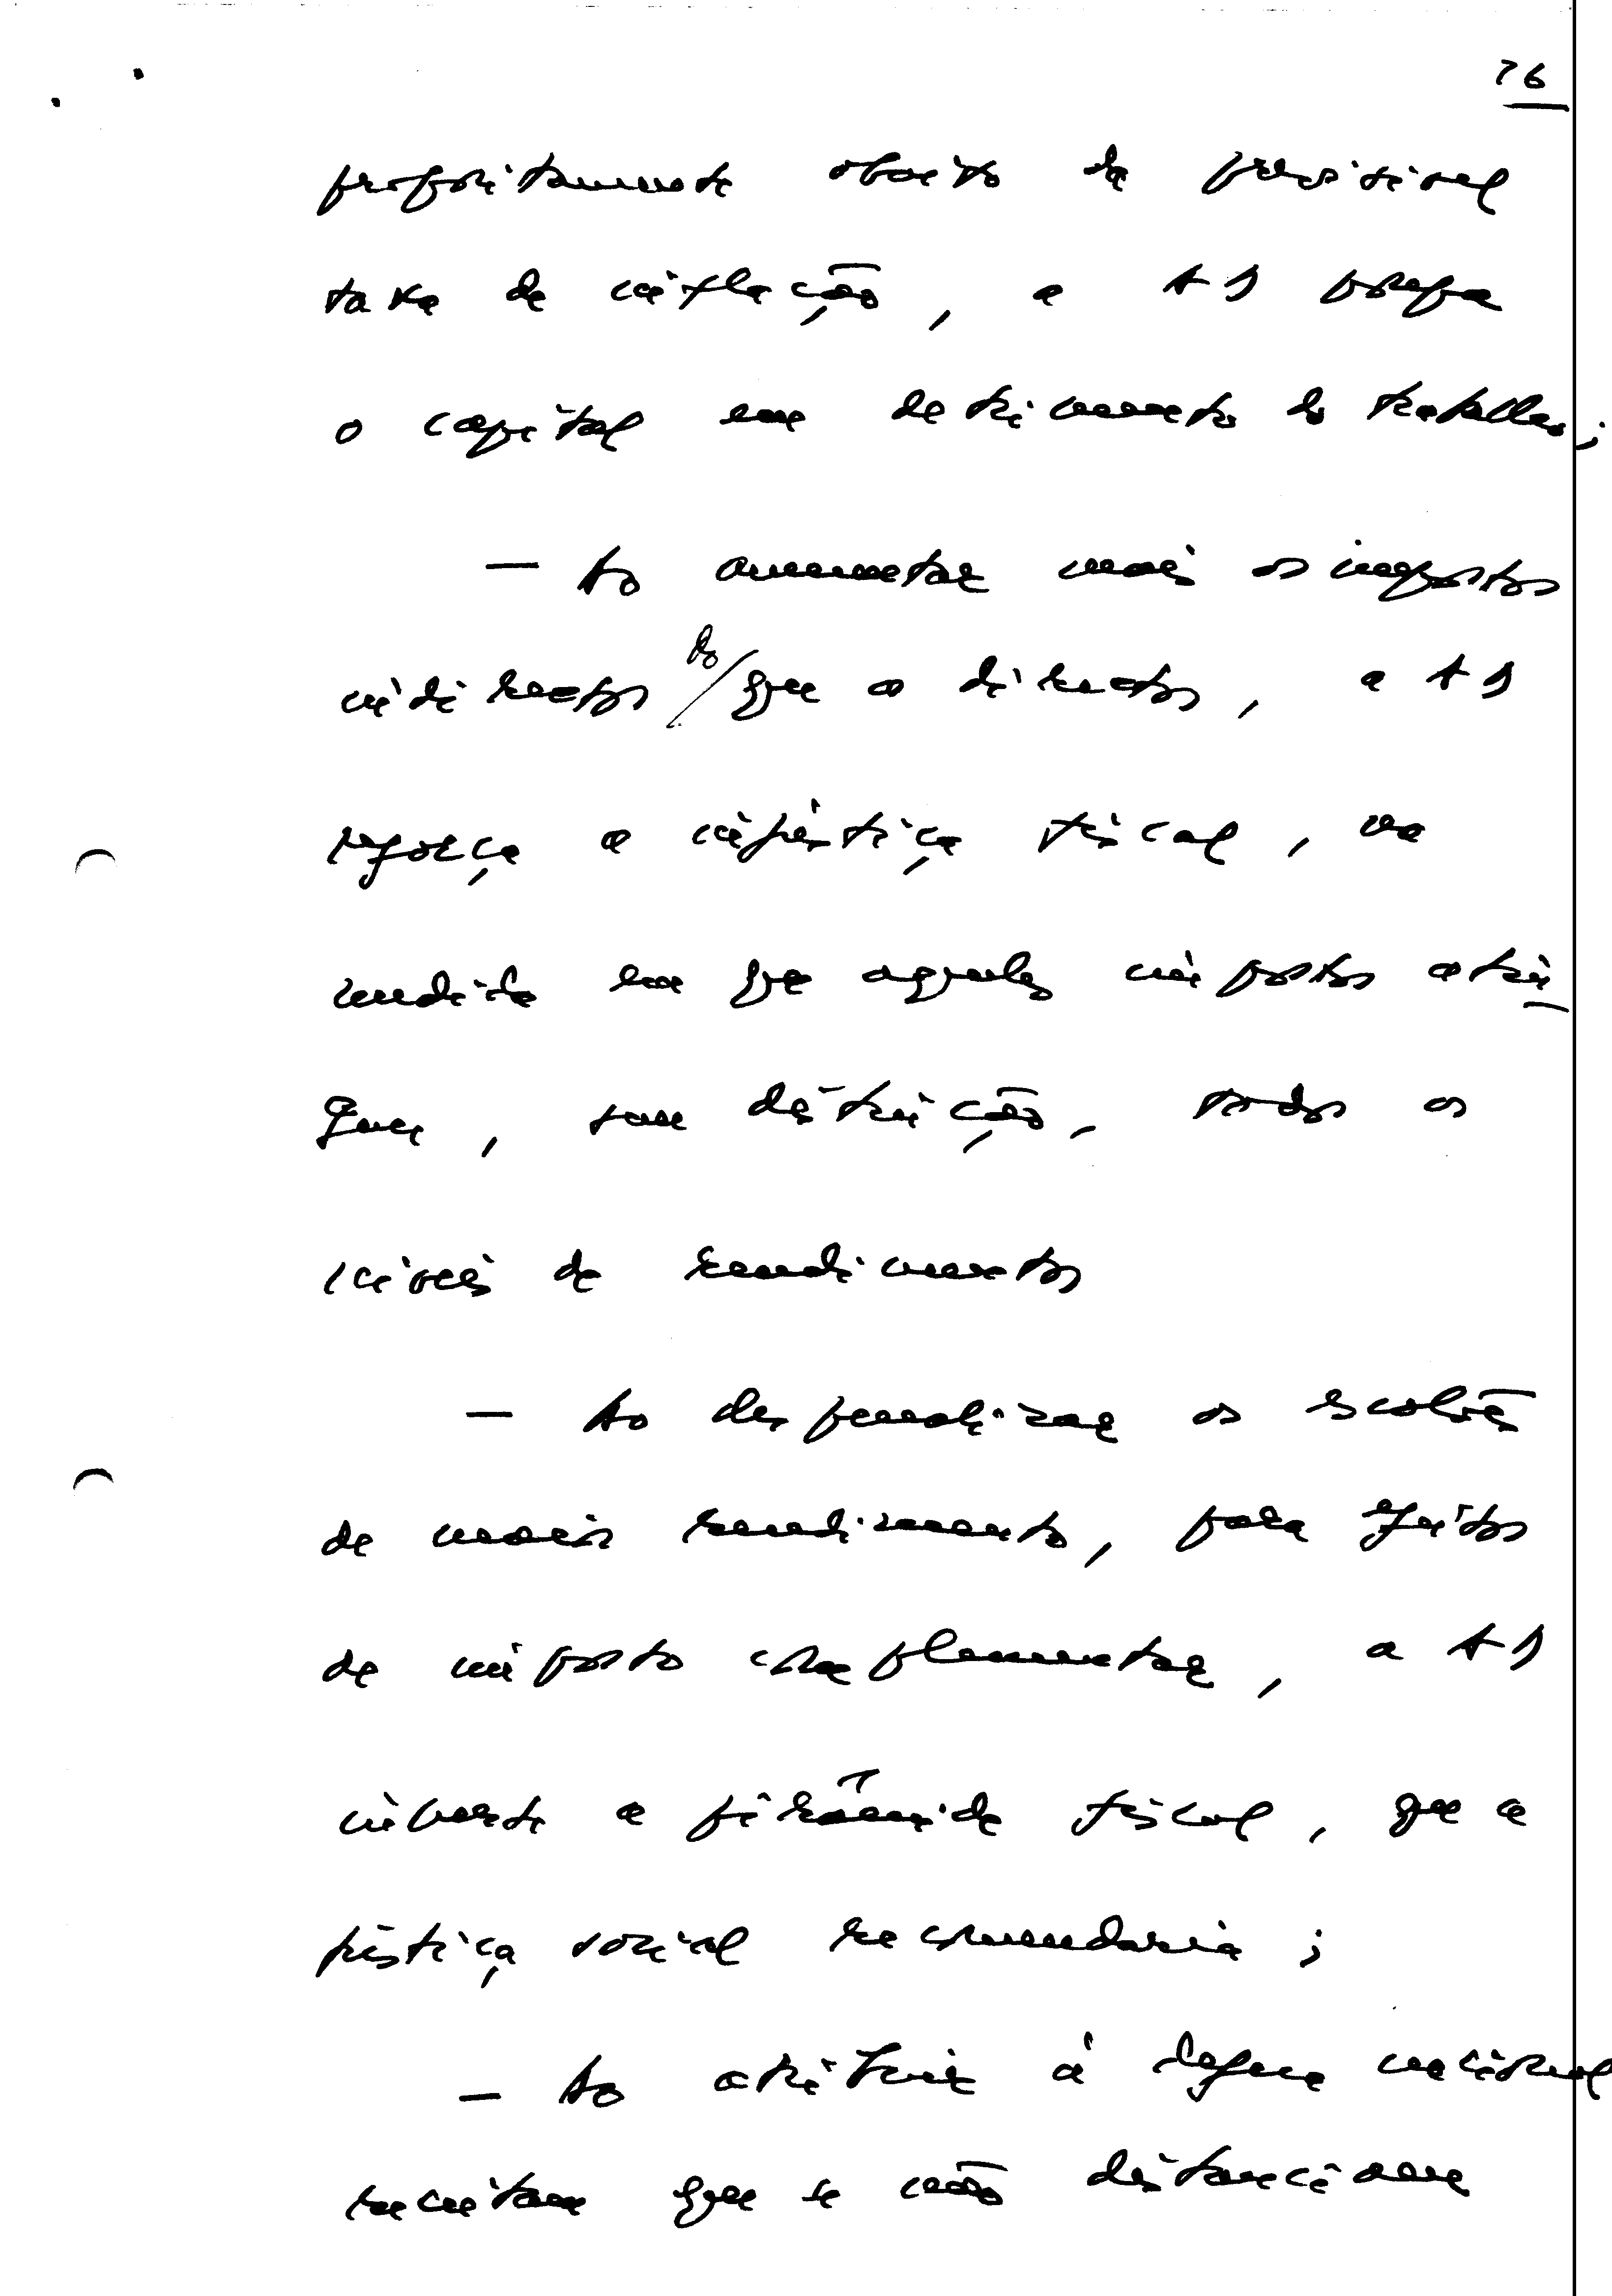 76
propositadamente abaixo da previsível
taxa de inflação, a AD poupa
o capital em detrimento do trabalho;
— Ao aumentar mais os impostos
indirectos do que os directos, a AD
reforça a injustiça fiscal, na
medida em que aqueles impostos atin
gem, sem distinção, todos os
níveis de rendimentos
— Ao despenalizar os escalões
de maior rendimento, para efeitos
de imposto complementar, a AD
inverte a pirâmide fiscal, que a
justiça social recomendaria;
— Ao atribuir à defesa nacional
que se não distanciam